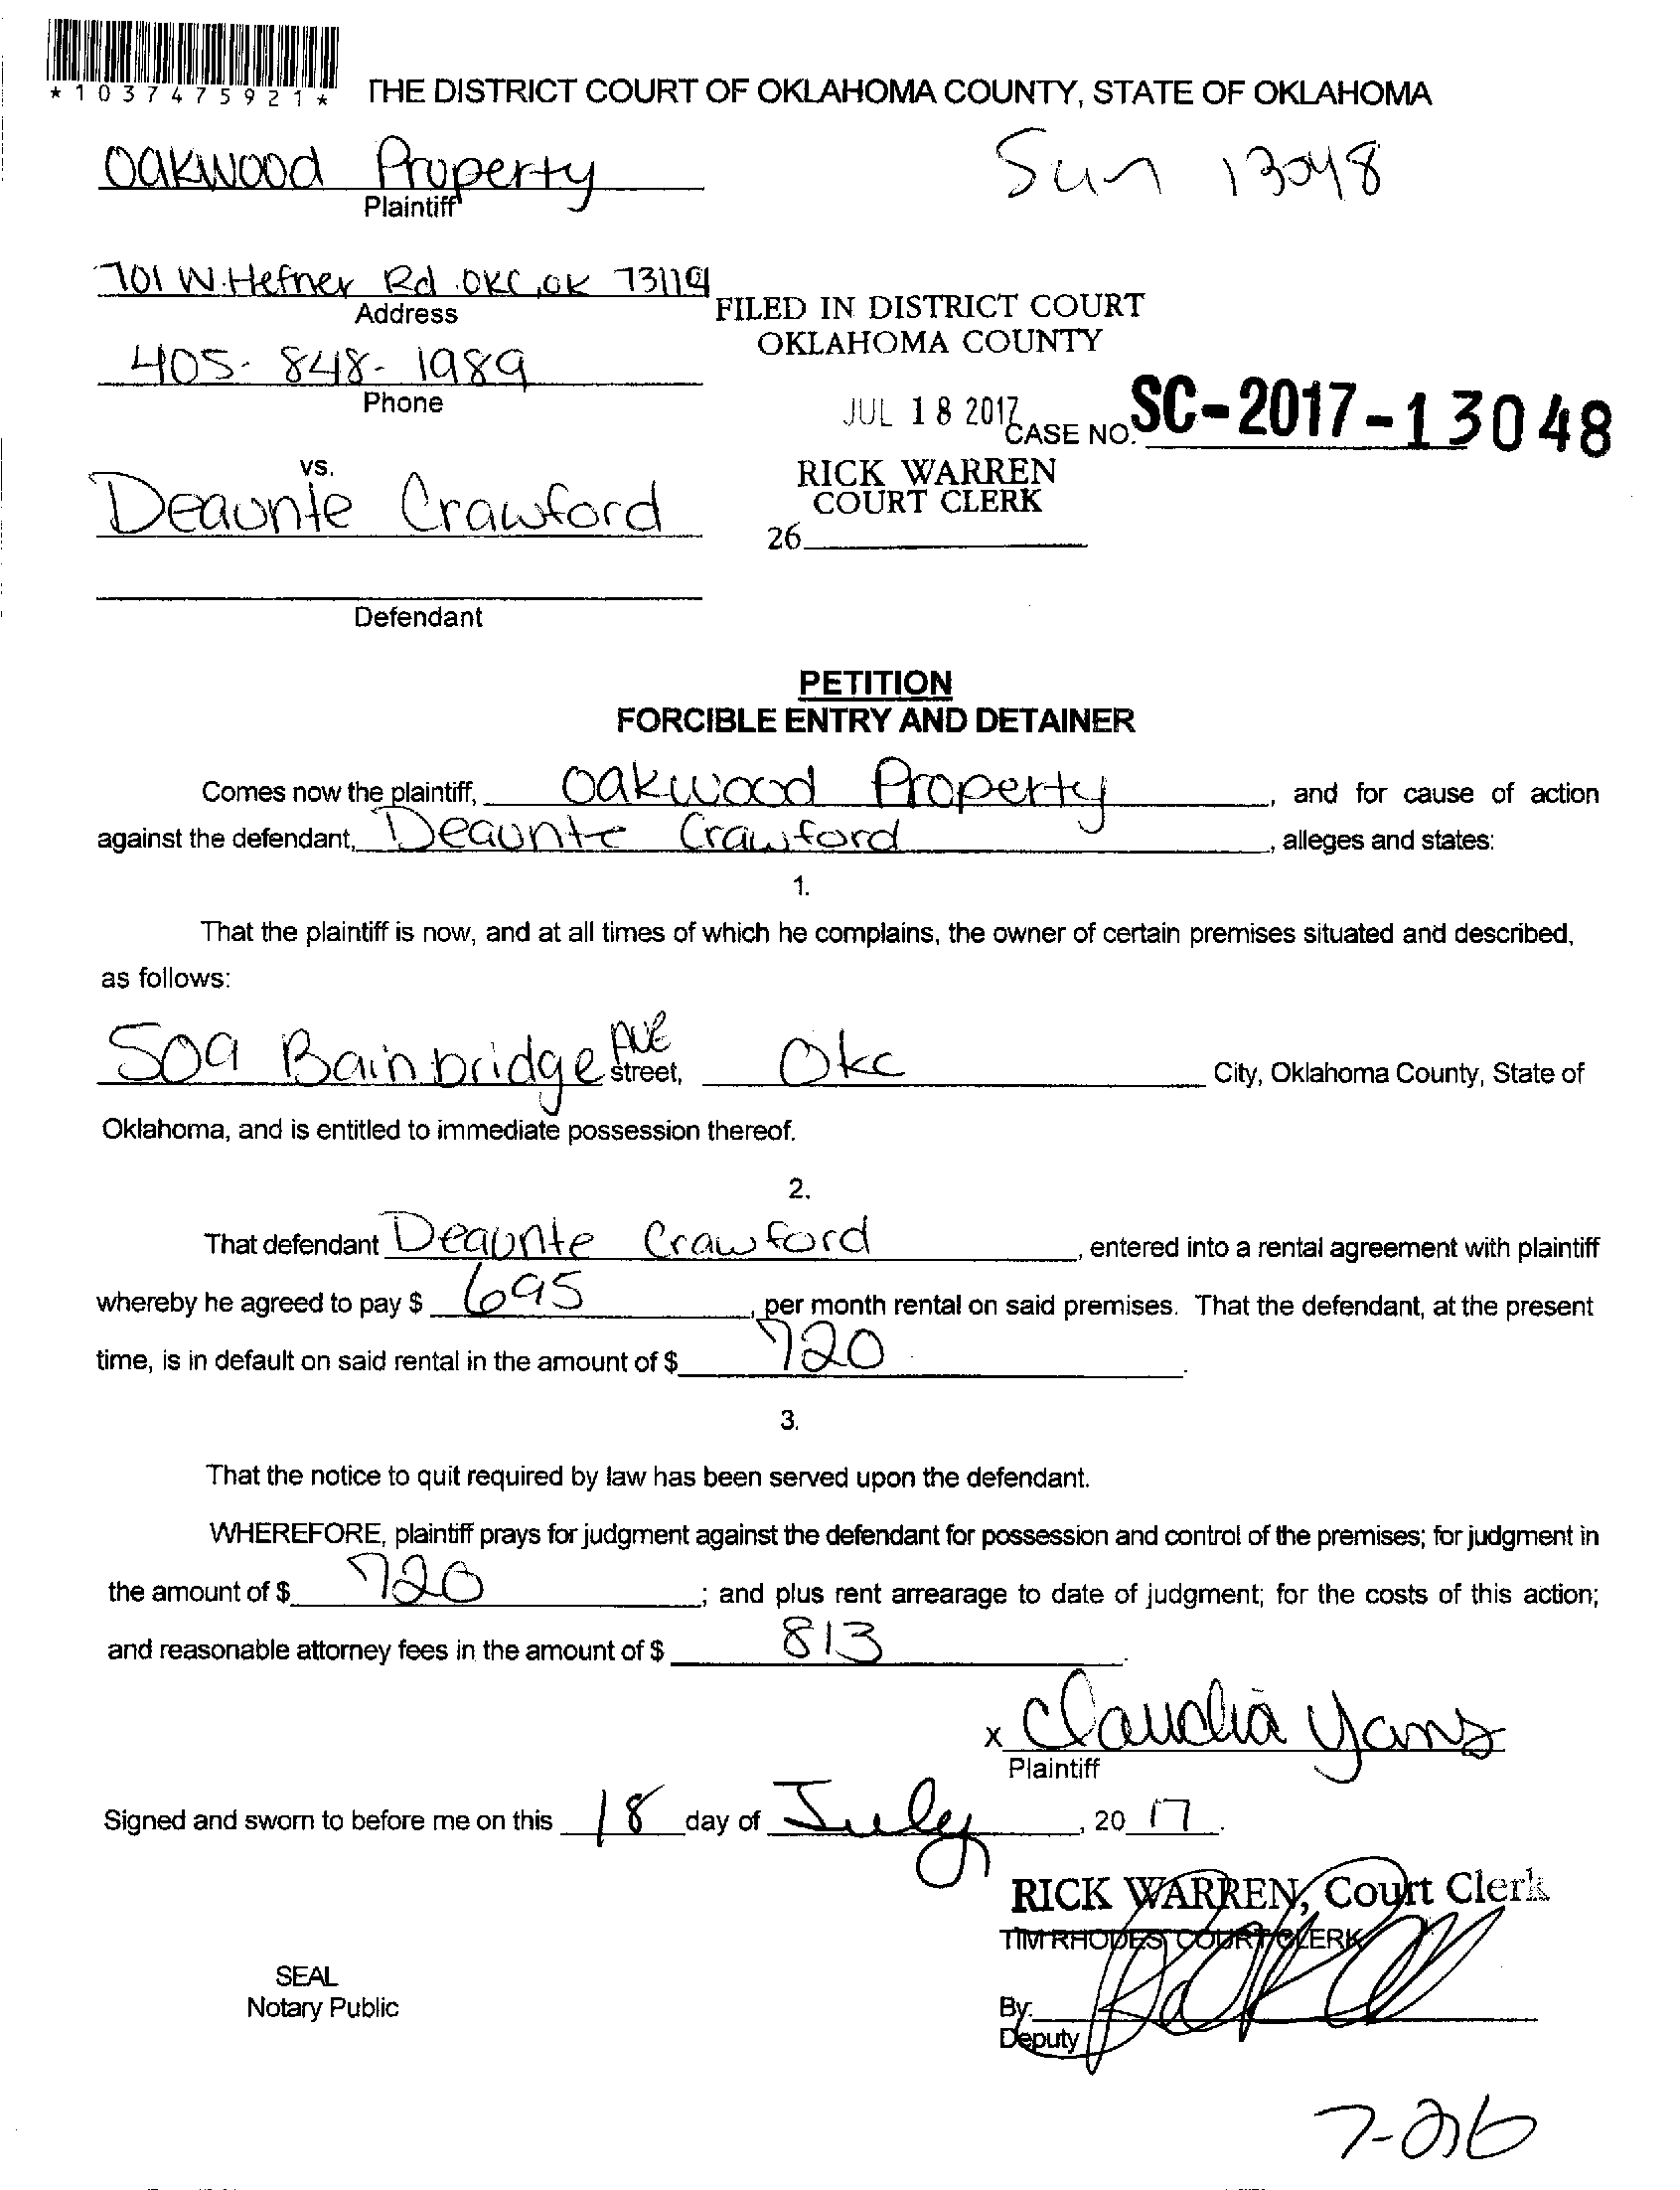 *1037475921*
THE DISTRICT COURT OF OKLAHOMA COUNTY, STATE OF OKLAHOMA
Oakwood Property
Plaintiff
Sun 13048
701 W. Hefner Rd. OKC, OK 73114
Address
FILED IN DISTRICT COURT
OKLAHOMA COUNTY
405-848-1989
Phone
JUL 18 2017
CASE NO. SC-2017-13048
vs.
RICK WARREN
COURT CLERK
Deaunte Crawford
26
Defendant
PETITION
FORCIBLE ENTRY AND DETAINER
Comes now the plaintiff, Oakwood Property, and for cause of action
against the defendant, Deaunte Crawford, alleges and states:
1.
That the plaintiff is now, and at all times of which he complains, the owner of certain premises situated and described,
as follows:
509 Bainbridge Ave street, Okc City, Oklahoma County, State of
Oklahoma, and is entitled to immediate possession thereof.
2.
That defendant Deaunte Crawford, entered into a rental agreement with plaintiff
whereby he agreed to pay $ 695, per month rental on said premises. That the defendant, at the present
time, is in default on said rental in the amount of $ 720.
3.
That the notice to quit required by law has been served upon the defendant.
WHEREFORE, plaintiff prays for judgment against the defendant for possession and control of the premises; for judgment in
the amount of $ 720; and plus rent arrearage to date of judgment; for the costs of this action;
and reasonable attorney fees in the amount of $ 813.
x Claudia Yans
Plaintiff
Signed and sworn to before me on this 18 day of July, 2017.
RICK WARREN, Court Clerk
TIM RHODES COURT CLERK
SEAL
Notary Public
By:
Deputy
7-26